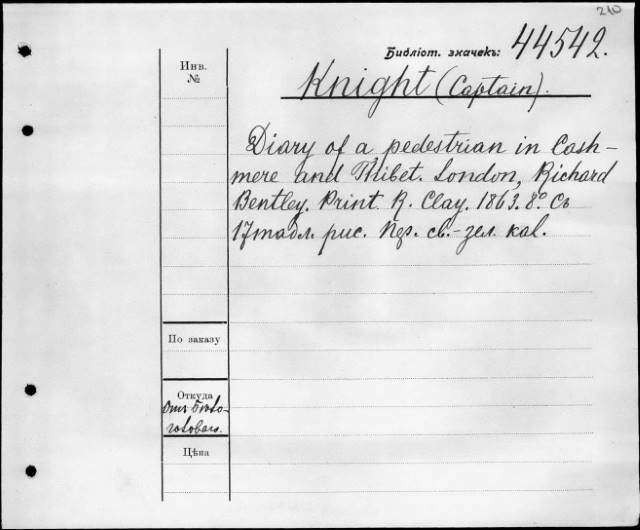 210
Библіот. значекъ: 44542.
Инв. №
Knight (Captain).
Diary of a pedestrian in Cash-
mere and Thibet. London, Richard
Bentley. Print. R. Clay. 1863. 8º. Съ
17 табл. рис. Пер. св.-зел. кал.
По заказу
Откуда
Отъ
Цѣна